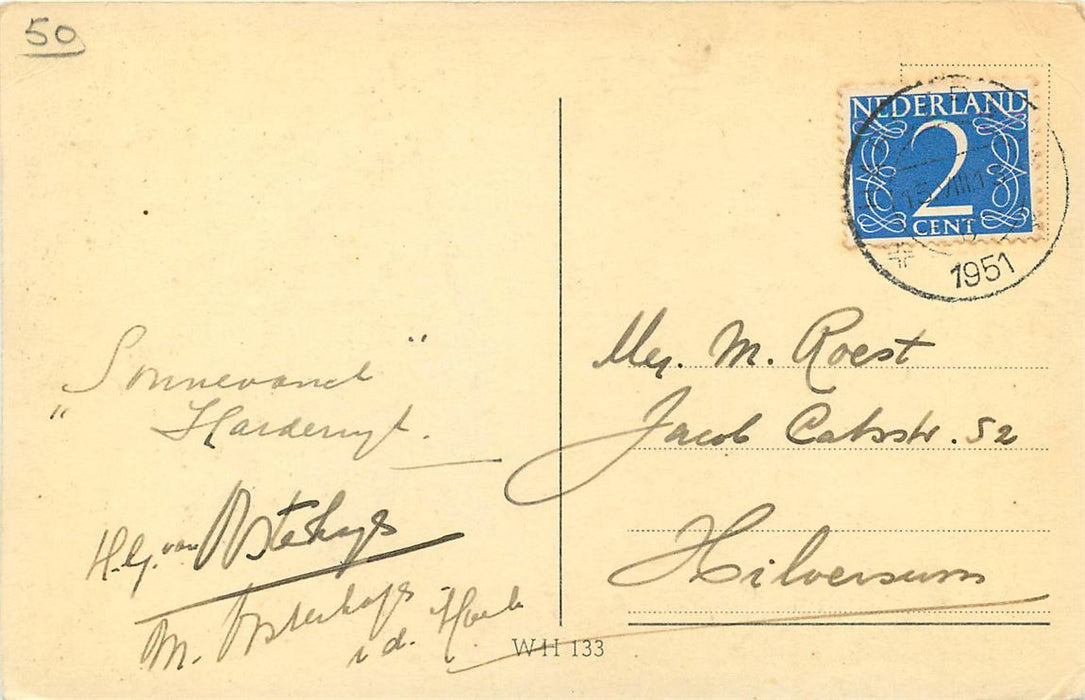 50
NEDERLAND
2
CENT
1951
"Sonnevanck"
Harderwijk.
H.G. van
M.
i.d.
Mej. M. Roest
Jacob Catsstr. 52
Hilversum
WH 133